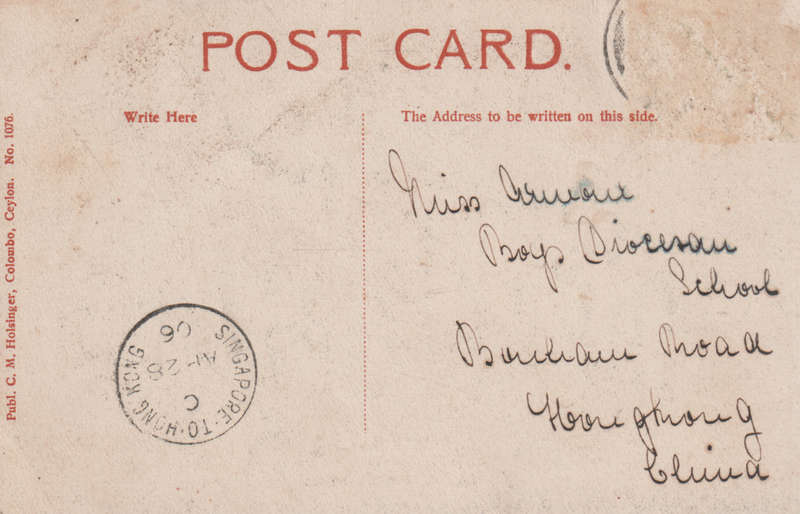 POST CARD.
Write Here
The Address to be written on this side.
Miss
Boys Diocesan
School
Bonham Road
Hongkong
China
SINGAPORE·TO·HONG KONG
C
28
06
Publ. C. M. Holsinger, Colombo, Ceylon. No. 1076.